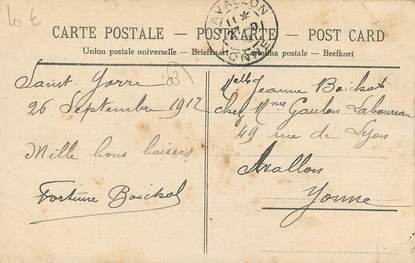 10 €
CARTE POSTALE — POSTKARTE — POST CARD
Union postale universelle — Briefkaart — Dopisna pomalka — Brefkort
AVALLON
YONNE
Saint-Yorre
26 Septembre 1912
Mille bons baisers
Fortune Boickot
Melle Jeanne Boickot
chez Mme Gaulon Laboureau
49 rue de Lyon
Avallon
Yonne